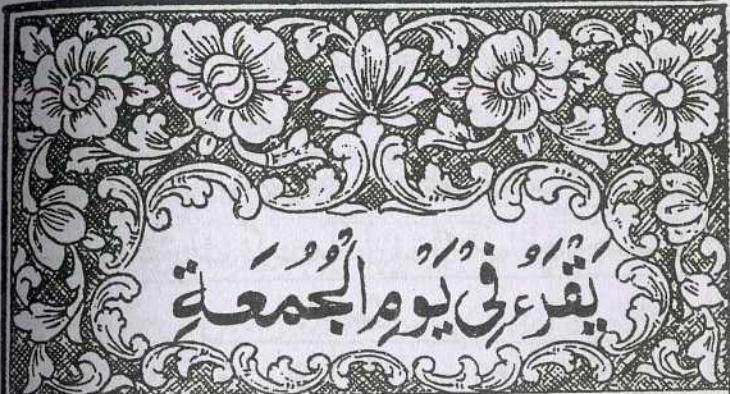 يَقْرَءُ فِي يَوْمِ الْجُمُعَةِ